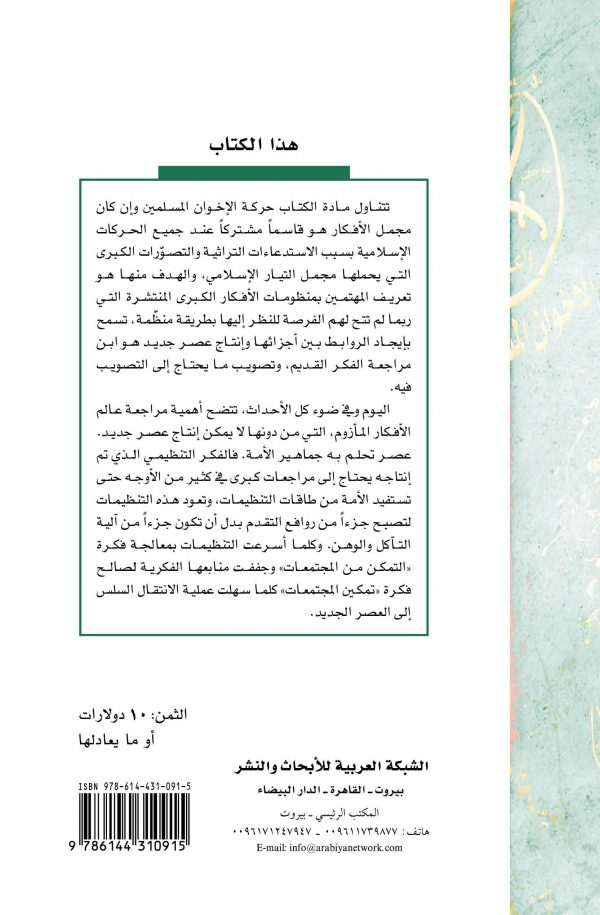 هذا الكتاب
تتناول مادة الكتاب حركة الإخوان المسلمين وإن كان
مجمل الأفكار هو قاسماً مشتركاً عند جميع الحركات
الإسلامية بسبب الاستدعاءات التراثية والتصوّرات الكبرى
التي يحملها مجمل التيار الإسلامي، والهدف منها هو
تعريف المهتمين بمنظومات الأفكار الكبرى المنتشرة التي
ربما لم تتح لهم الفرصة للنظر إليها بطريقة منظّمة، تسمح
بإيجاد الروابط بين أجزائها وإنتاج عصر جديد هو ابن
مراجعة الفكر القديم، وتصويب ما يحتاج إلى التصويب
فيه.
اليوم وفي ضوء كل الأحداث، تتضح أهمية مراجعة عالم
الأفكار المأزوم، التي من دونها لا يمكن إنتاج عصر جديد.
عصر تحلم به جماهير الأمة. فالفكر التنظيمي الذي تم
إنتاجه يحتاج إلى مراجعات كبرى في كثير من الأوجه حتى
تستفيد الأمة من طاقات التنظيمات، وتعود هذه التنظيمات
لتصبح جزءاً من روافع التقدم بدل أن تكون جزءاً من آلية
التآكل والوهن. وكلما أسرعت التنظيمات بمعالجة فكرة
«التمكن من المجتمعات» وجففت منابعها الفكرية لصالح
فكرة «تمكين المجتمعات» كلما سهلت عملية الانتقال السلس
إلى العصر الجديد.
الثمن: ١٠ دولارات
أو ما يعادلها
الشبكة العربية للأبحاث والنشر
بيروت ـ القاهرة ـ الدار البيضاء
المكتب الرئيسي ـ بيروت
هاتف: ٠٠٩٦١١٧٣٩٨٧٧ - ٠٠٩٦١٧١٢٤٧٩٤٧
E-mail: info@arabiyanetwork.com
ISBN 978-614-431-091-5
9 786144 310915